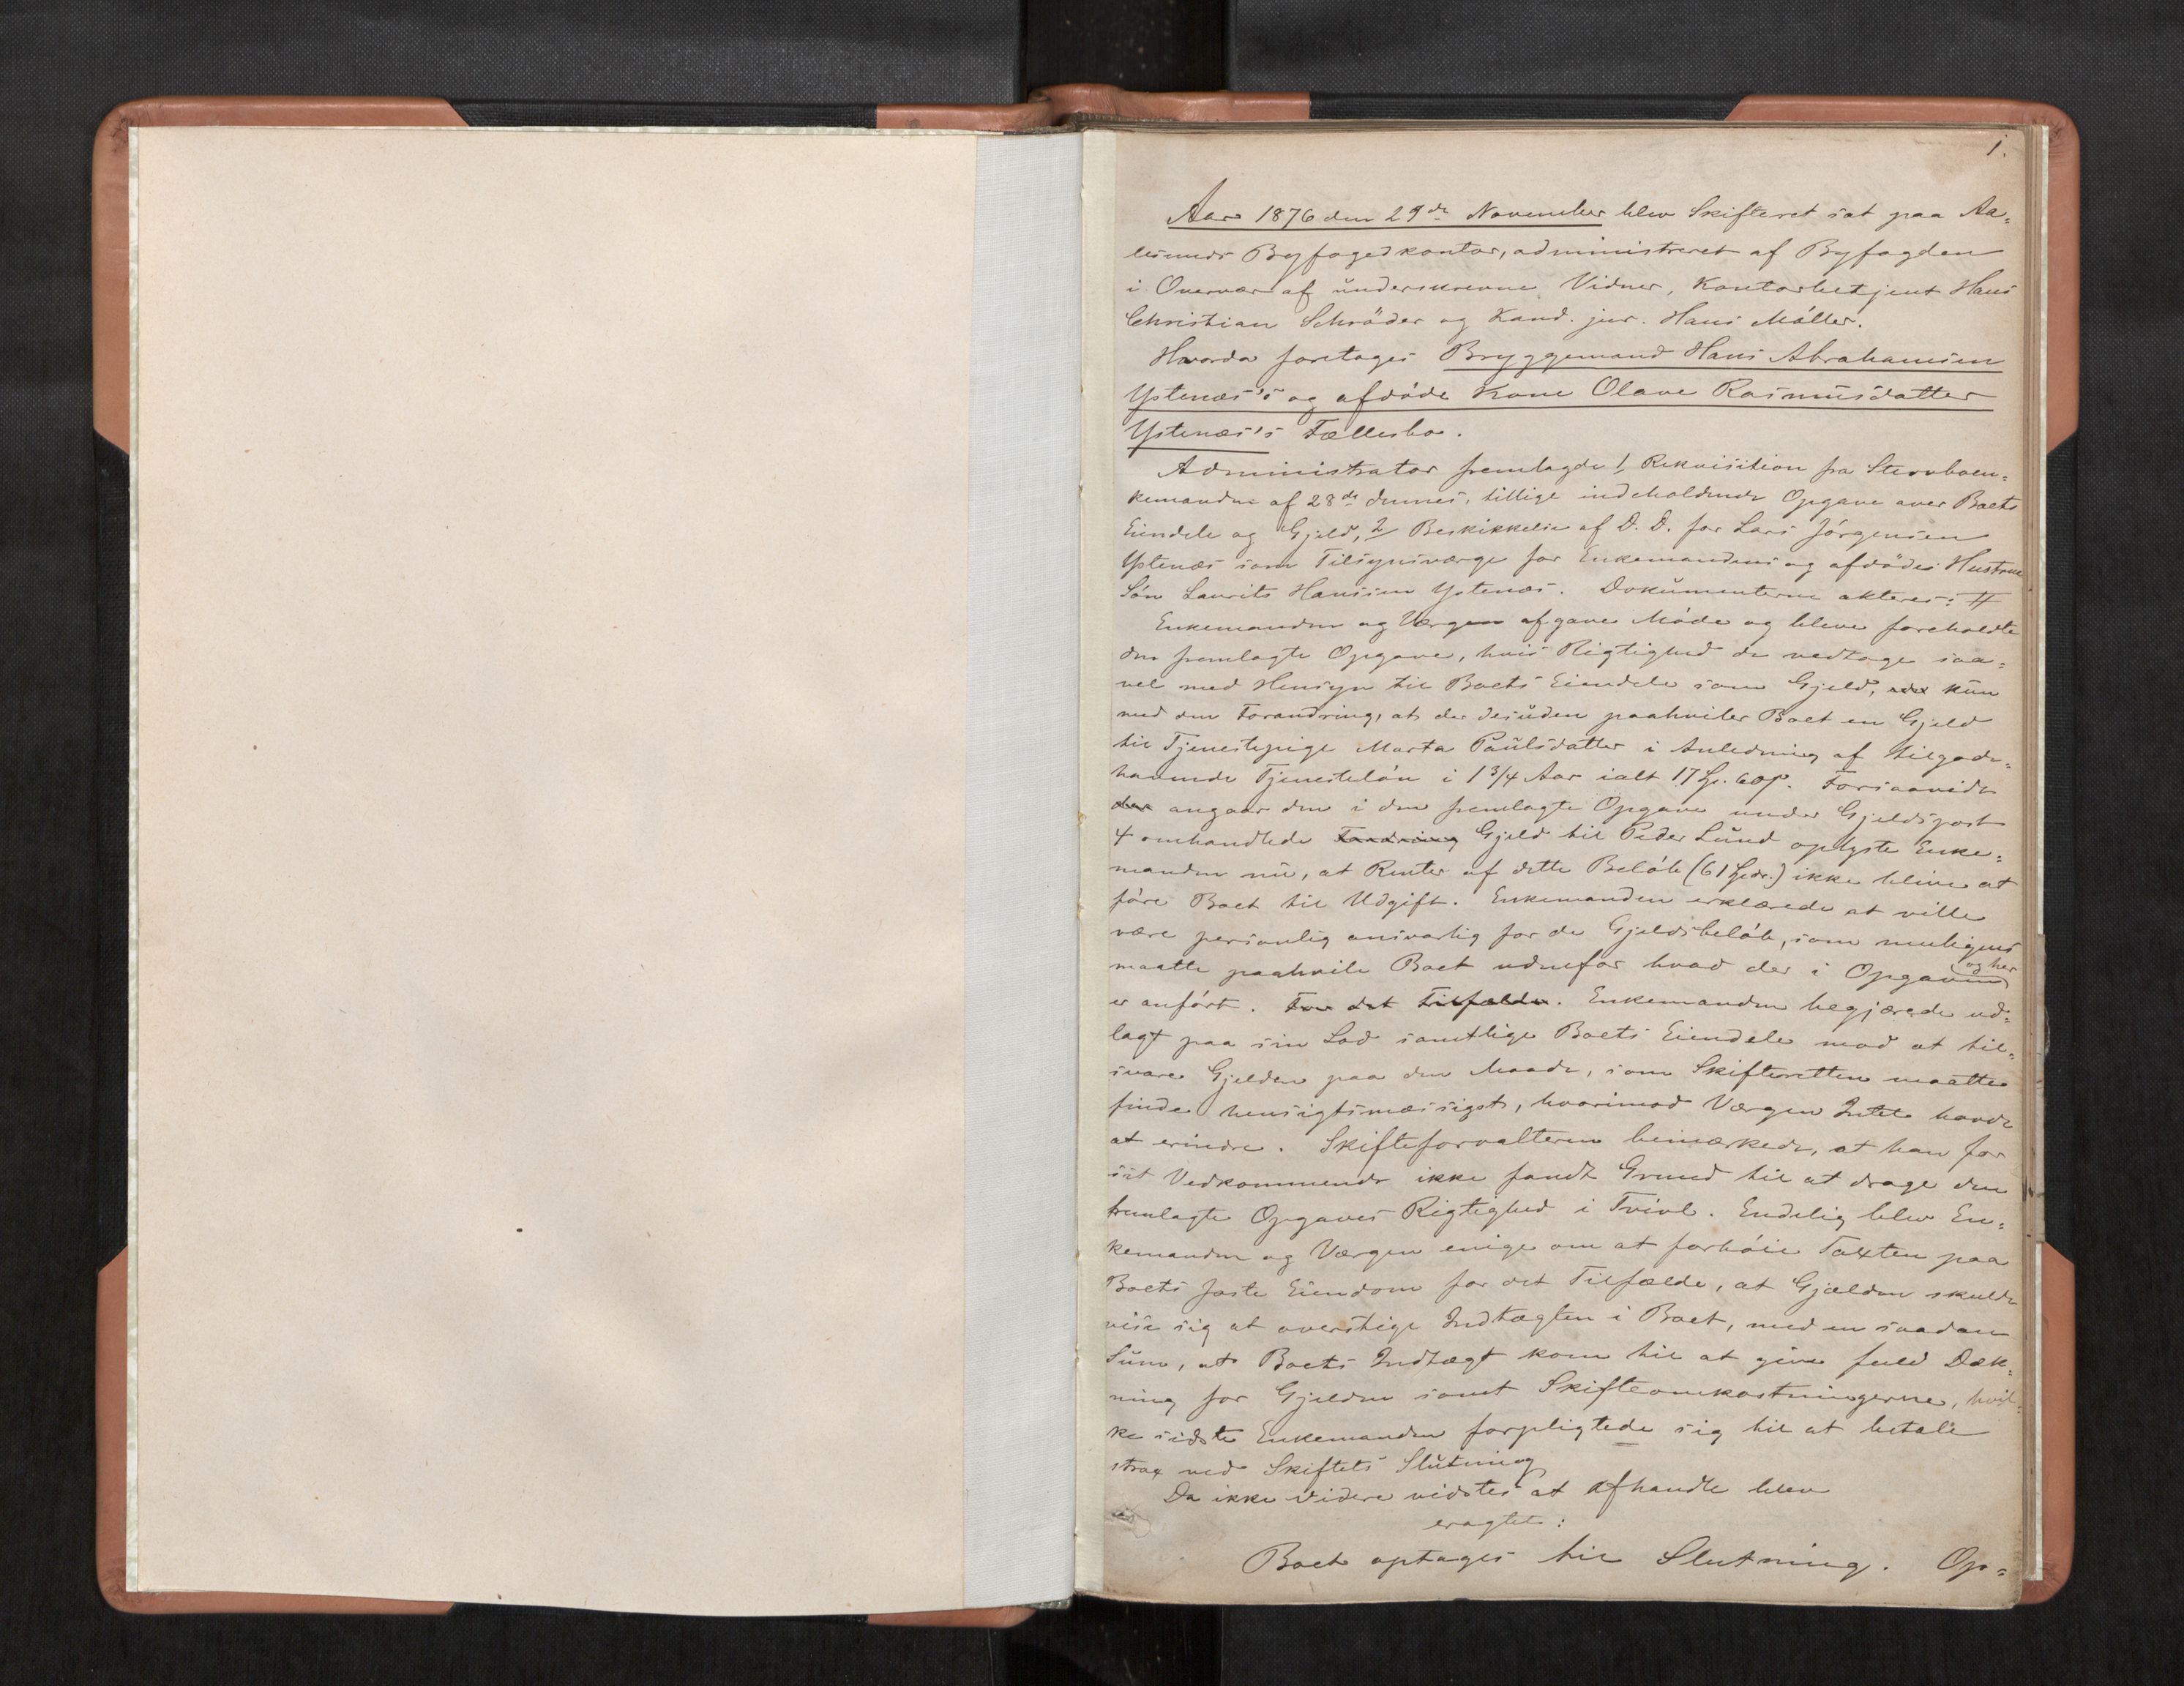 1.
Aar 1876 den 29de November blev Skifteret sat paa Aa=
lesunds Byfogedkontor, administreret af Byfogden
i Overvær af underskrevne Vidner, Kontorbetjent Hans
Christian Schröder og Kand. jur. Hans Möller.
Hvorda foretoges Bryggemand Hans Abrahamsen
Ystenæs's og afdöde Kone Olave Rasmusdatter
Ystenæs's Fællesbo.
Administrator fremlagde 1, Rekvisition fra Stervboen=
kemanden af 28de dennes, tillige indeholdende Opgave over Boets
Eiendele og Gjeld, 2, Beskikkelse af D. D. for Lars Jörgensen
Ystenæs som Tilsynsværge for Enkemandens og afdödes Hustrues
Sön Laurits Hanssen Ystenæs. Dokumenterne akteres: #
Enkemanden og Værgen afgave Möde og bleve foreholdte
den fremlagte Opgave, hvis Rigtighed de vedtoge saa=
vel med Hensyn til Boets Eiendele som Gjeld, kun
med den Forandring, at der desuden paahviler Boet en Gjeld
til Tjenestepige Marta Paulsdatter i Anledning af tilgode=
havende Tjenestelön i 1 3/4 Aar ialt 17 Sp. 60 s. Forsaavidt
der angaar den i den fremlagte Opgave under Gjeldspost
4 omhandlede Gjeld til Peder Lund oplyste Enke=
manden nu, at Renter af dette Belöb (61 Spdr.) ikke blive at
före Boet til Udgift. Enkemanden erklærede at ville
være personlig ansvarlig for de Gjeldsbelöb, som muligens
maatte paahvile Boet udenfor hvad der i Opgaven og her
er anfört. For det Tilfælde. Enkemanden begjærede ud=
lagt paa sin Lod samtlige Boets Eiendele mod at til=
svare Gjelden paa den Maade, som Skifteretten maatte
finde hensigtsmæssigst, hvorimod Værgen Intet havde
at erindre. Skifteforvalteren bemærkede, at han for
sit Vedkommende ikke fandt Grund til at drage den
fremlagte Opgaves Rigtighed i Tvivl. Endelig blev En=
kemanden og Værgen enige om at forhöie Taxten paa
Boets faste Eiendom for det Tilfælde, at Gjælden skulde
vise sig at overstige Indtægten i Boet, med en saadan
Sum, at Boets Indtægt kom til at give fuld Dæk=
ning for Gjelden samt Skifteomkostningerne, hvil=
ke sidste Enkemanden forpligtede sig til at betale
strax ved Skiftets Slutning
Da ikke videre vidstes at afhandle blev
eragtet:
Boet optages til Slutning. Op=